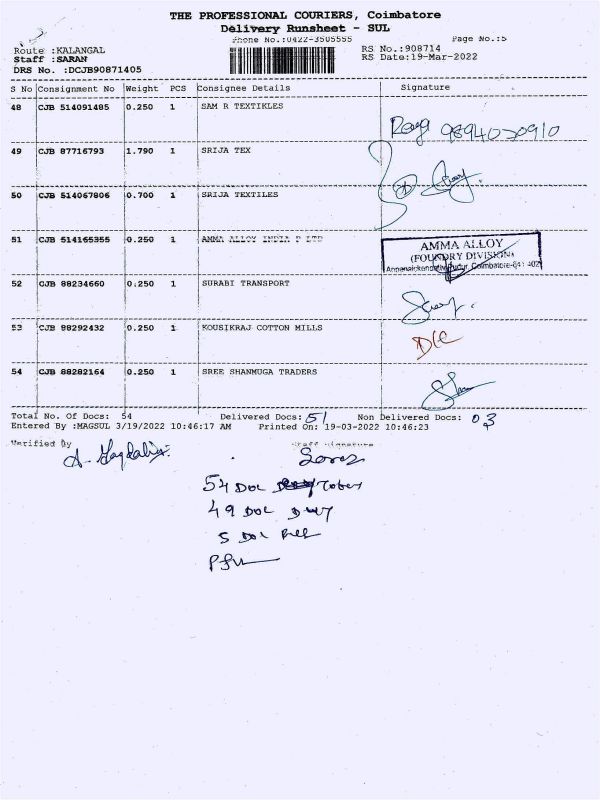 THE PROFESSIONAL COURIERS, Coimbatore
Delivery Runsheet - SUL
Phone No.:0422-3505555 Page No.:5
Route :KALANGAL RS No.:908714
Staff :SARAN RS Date:19-Mar-2022
DRS No. :DCJB90871405
S No Consignment No Weight PCS Consignee Details Signature
48 CJB 514091485 0.250 1 SAM R TEXTIKLES
9894030910
49 CJB 87716793 1.790 1 SRIJA TEX
50 CJB 514067806 0.700 1 SRIJA TEXTILES
51 CJB 514165355 0.250 1 AMMA ALLOY INDIA P LTD
AMMA ALLOY
(FOUNDRY DIVISION)
Coimbatore-641 402
52 CJB 88234660 0.250 1 SURABI TRANSPORT
53 CJB 88292432 0.250 1 KOUSIKRAJ COTTON MILLS
D/C
54 CJB 88282164 0.250 1 SREE SHANMUGA TRADERS
Total No. Of Docs: 54 Delivered Docs: 51 Non Delivered Docs: 03
Entered By :MAGSUL 3/19/2022 10:46:17 AM Printed On: 19-03-2022 10:46:23
Verified By Staff Signature
54 Doc
49 Doc
5 Doc